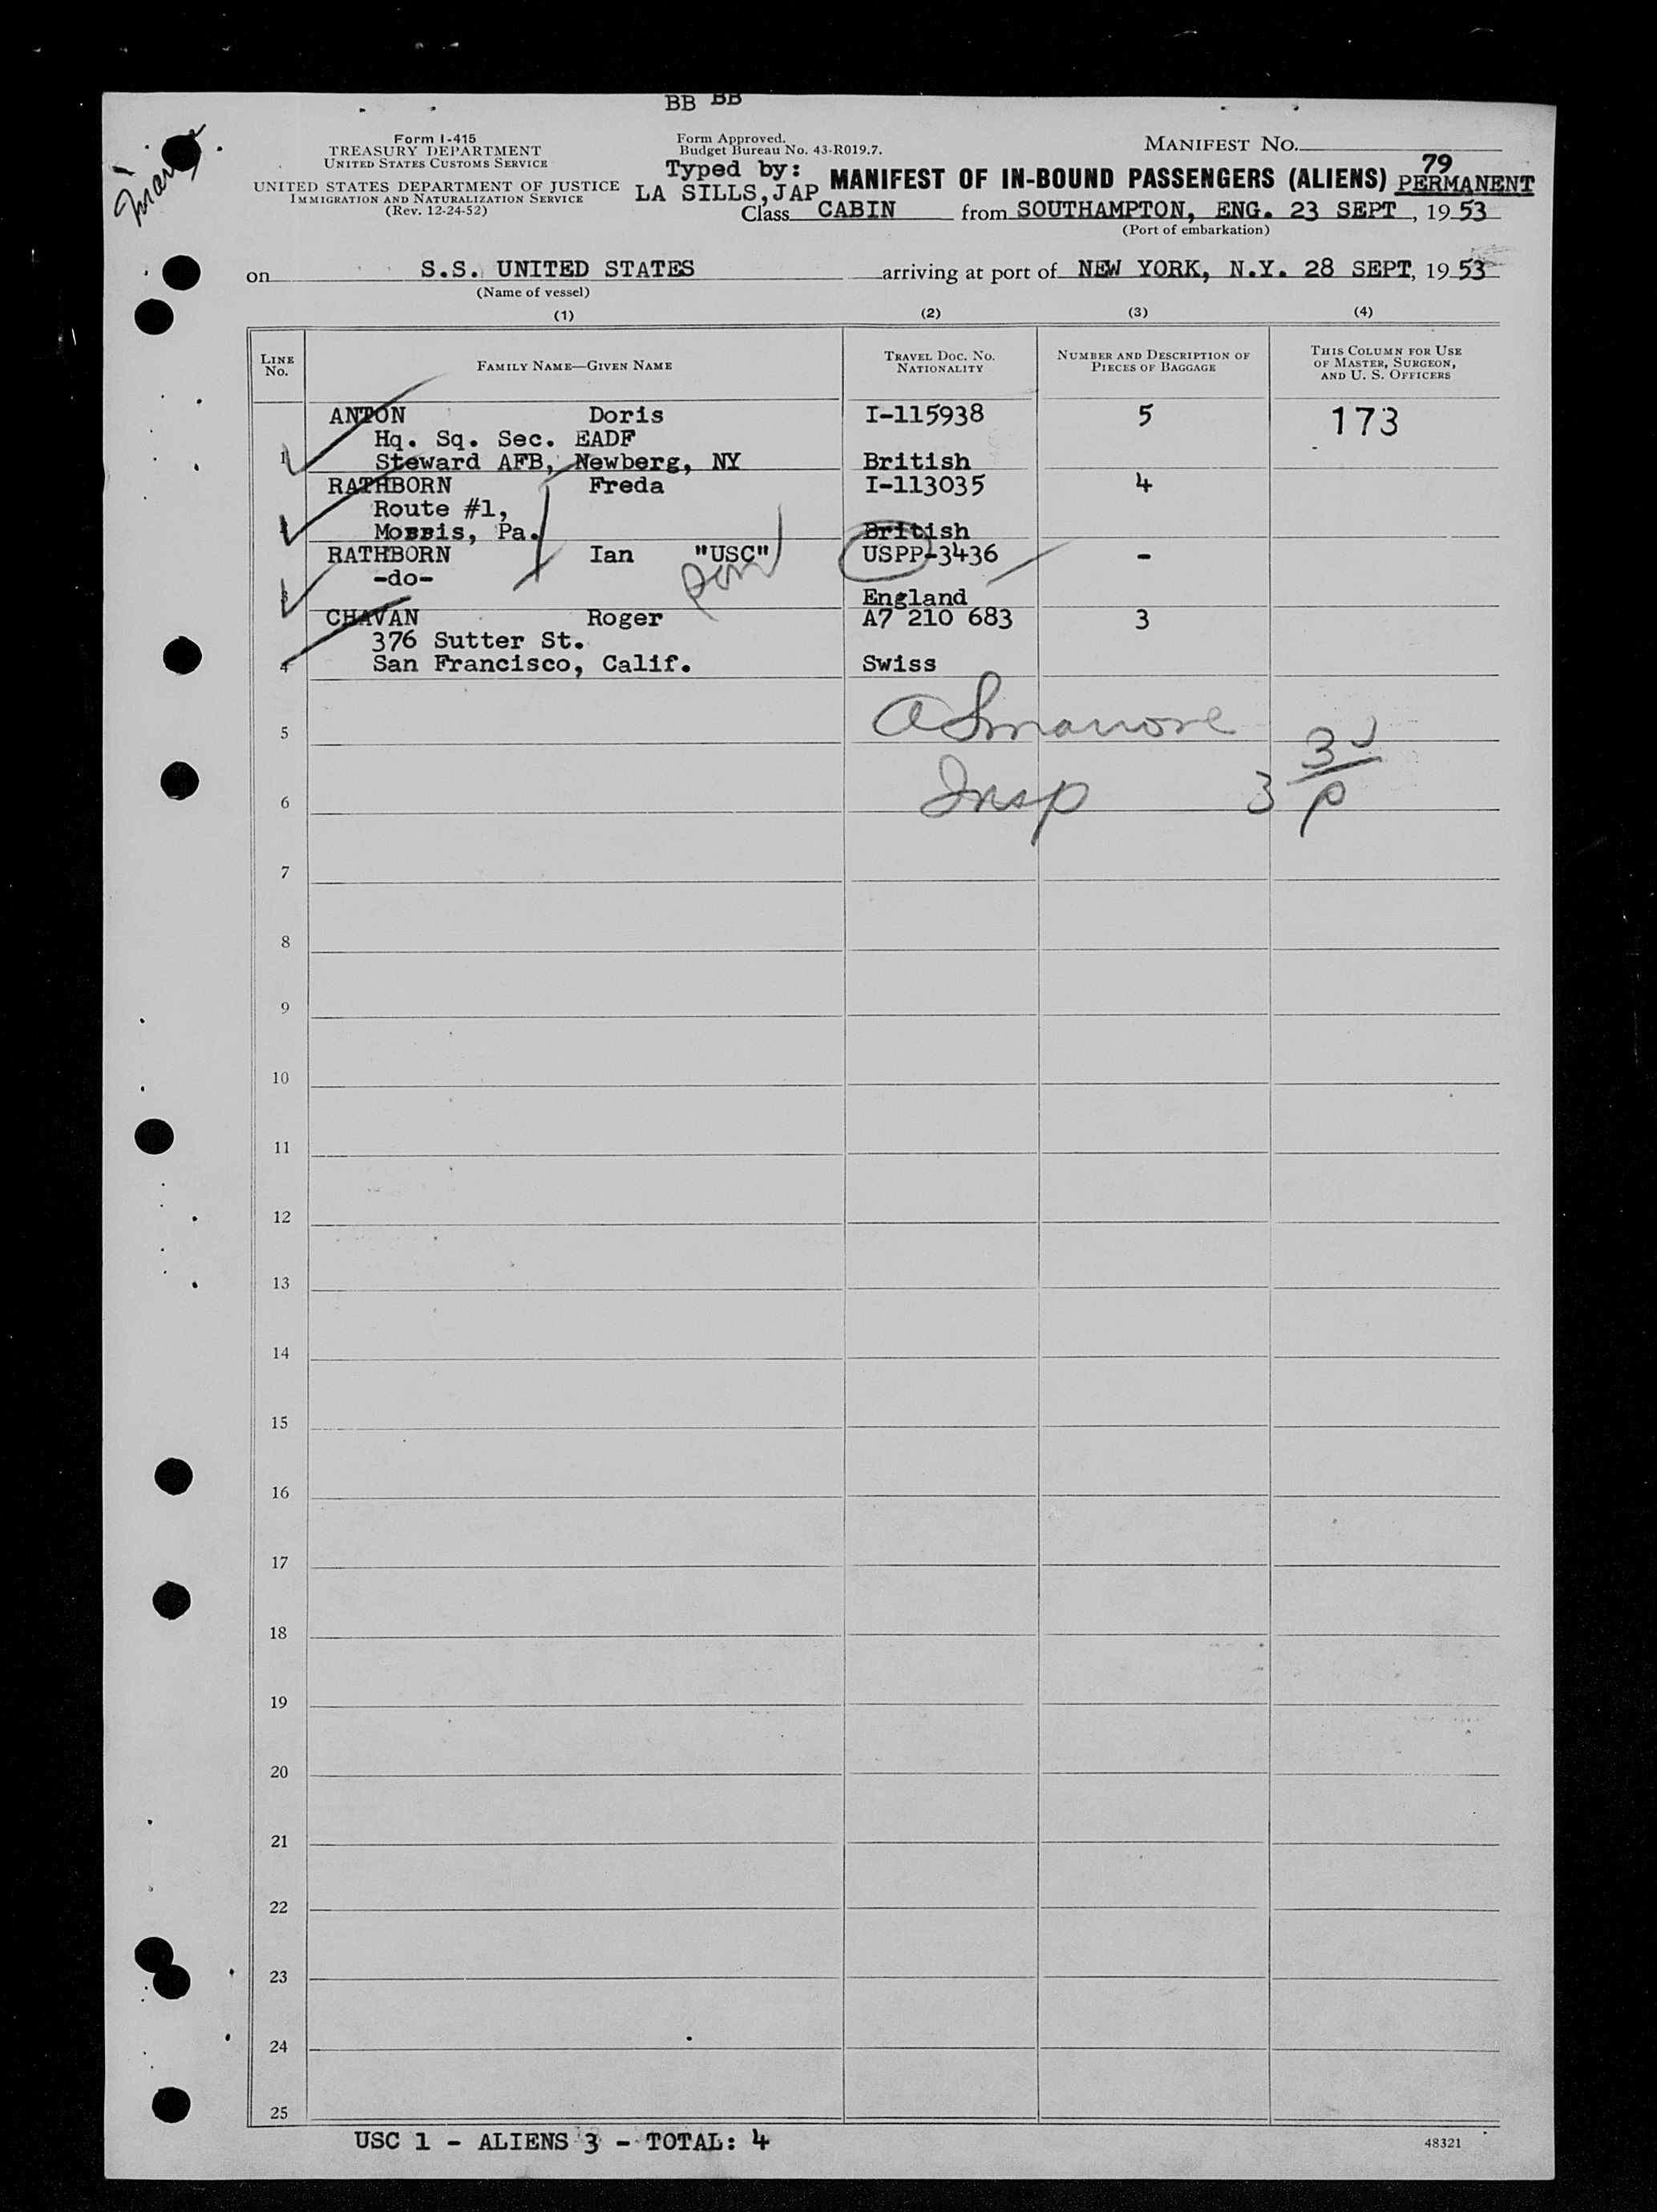 BB BB
Form I-415
TREASURY DEPARTMENT
UNITED STATES CUSTOMS SERVICE
UNITED STATES DEPARTMENT OF JUSTICE
IMMIGRATION AND NATURALIZATION SERVICE
(Rev. 12-24-52)
Form Approved.
Budget Bureau No. 43-R019.7.
Typed by:
LA SILLS, JAP
MANIFEST NO.
79
MANIFEST OF IN-BOUND PASSENGERS (ALIENS) PERMANENT
Class CABIN from SOUTHAMPTON, ENG. 23 SEPT, 1953
(Port of embarkation)
on S.S. UNITED STATES arriving at port of NEW YORK, N.Y. 28 SEPT, 1953
(Name of vessel)
(1) (2) (3) (4)
LINE No. FAMILY NAME—GIVEN NAME TRAVEL DOC. NO. NATIONALITY NUMBER AND DESCRIPTION OF PIECES OF BAGGAGE THIS COLUMN FOR USE OF MASTER, SURGEON, AND U. S. OFFICERS
ANTON Doris I-115938 5 173
Hq. Sq. Sec. EADF
1 Steward AFB, Newberg, NY British
RATHBORN Freda I-113035 4
Route #1,
2 Morris, Pa. British
RATHBORN Ian "USC" USPP-3436 -
-do-
3 England
CHAVAN Roger A7 210 683 3
376 Sutter St.
4 San Francisco, Calif. Swiss
5
3
6 Insp 3 P
7
8
9
10
11
12
13
14
15
16
17
18
19
20
21
22
23
24
25
USC 1 - ALIENS 3 - TOTAL: 4
48321